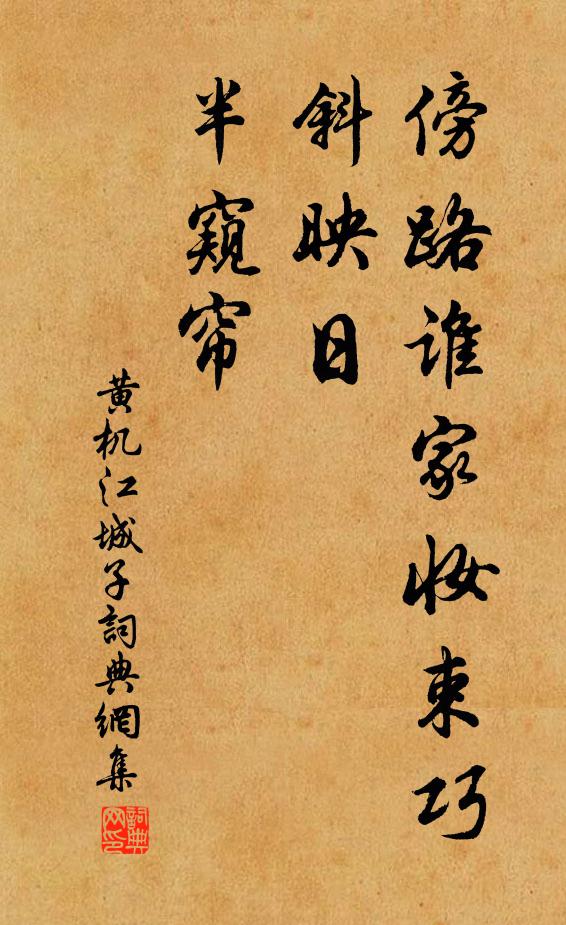 傍路谁家妆束巧
斜映日
半窥帘
黄机江城子詞典網集
詞典网印